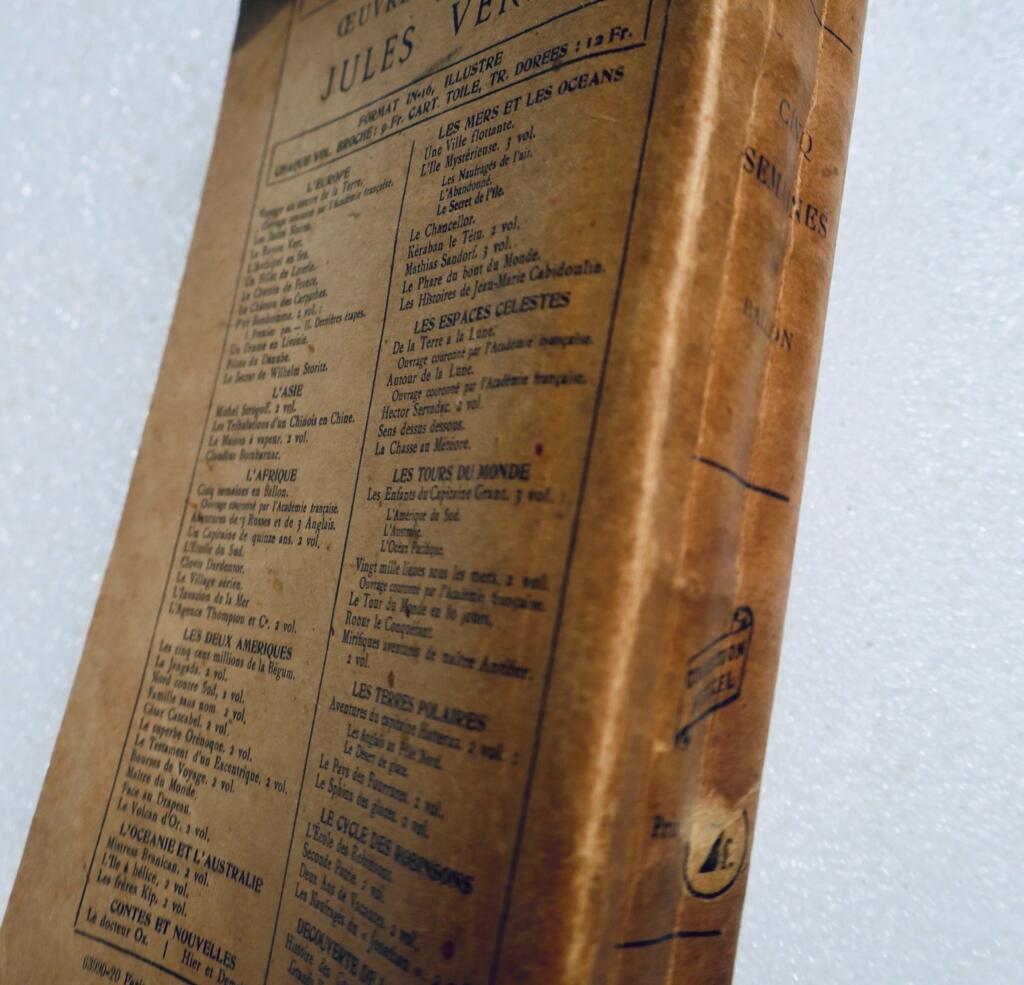 ŒUVRE
JULES VER
FORMAT IN-16, ILLUSTRE
CHAQUE VOL. BROCHÉ: 9 Fr. CART. TOILE, TR. DORÉES : 12 Fr.
L'EUROPE
Voyage au centre de la Terre.
Ouvrage couronné par l'Académie française.
Les Indes Noires.
Le Rayon Vert.
L'Archipel en feu.
Un Billet de Loterie.
Le Chemin de France.
Le Château des Carpathes.
P'tit Bonhomme. 2 vol. :
I. Premier pas. — II. Dernières étapes.
Un Drame en Livonie.
Pilote du Danube.
Le Secret de Wilhelm Storitz.
L'ASIE
Michel Strogoff. 2 vol.
Les Tribulations d'un Chinois en Chine.
La Maison à vapeur. 2 vol.
Claudius Bombarnac.
L'AFRIQUE
Cinq semaines en Ballon.
Ouvrage couronné par l'Académie française.
Aventures de 3 Russes et de 3 Anglais.
Un Capitaine de quinze ans. 2 vol.
L'Étoile du Sud.
Clovis Dardentor.
Le Village aérien.
L'Invasion de la Mer
L'Agence Thompson et Cº. 2 vol.
LES DEUX AMERIQUES
Les cinq cent millions de la Bégum.
La Jangada. 2 vol.
Nord contre Sud, 2 vol.
Famille sans nom. 2 vol.
César Cascabel. 2 vol.
Le superbe Orénoque. 2 vol.
Le Testament d'un Excentrique. 2 vol.
Bourses de Voyage. 2 vol.
Maître du Monde.
Face au Drapeau.
Le Volcan d'Or. 2 vol.
L'OCEANIE ET L'AUSTRALIE
Mistress Branican. 2 vol.
L'Ile à hélice. 2 vol.
Les frères Kip. 2 vol.
CONTES ET NOUVELLES
Le docteur Ox. | Hier et De
LES MERS ET LES OCEANS
Une Ville flottante.
L'Ile Mystérieuse. 3 vol.
Les Naufragés de l'air.
L'Abandonné.
Le Secret de l'Ile.
Le Chancellor.
Kéraban le Têtu. 2 vol.
Mathias Sandorf. 3 vol.
Le Phare du bout du Monde.
Les Histoires de Jean-Marie Cabidoulin.
LES ESPACES CELESTES
De la Terre a la Lune.
Ouvrage couronné par l'Académie française.
Autour de la Lune.
Ouvrage couronné par l'Académie française.
Hector Servadac. 2 vol.
Sens dessus dessous.
La Chasse au Météore.
LES TOURS DU MONDE
Les Enfants du Capitaine Grant. 3 vol. :
L'Amérique du Sud.
L'Australie.
L'Océan Pacifique.
Vingt mille lieues sous les mers. 2 vol.
Ouvrage couronné par l'Académie française.
Le Tour du Monde en 80 jours.
Robur le Conquérant.
Mirifiques aventures de maître Antifer.
2 vol.
LES TERRES POLAIRES
Aventures du capitaine Hatteras. 2 vol. :
Les Anglais au Pôle Nord.
Le Désert de glace.
Le Pays des Fourrures. 2 vol.
Le Sphinx des glaces. 2 vol.
LE CYCLE DES ROBINSONS
L'École des Robinsons.
Seconde Patrie. 2 vol.
Deux Ans de Vacances. 2 vol.
Les Naufragés du « Jonathan ». 2
DECOUVERTE DE L
Histoire des
CINQ
SEMAINES
BALLON
Prix